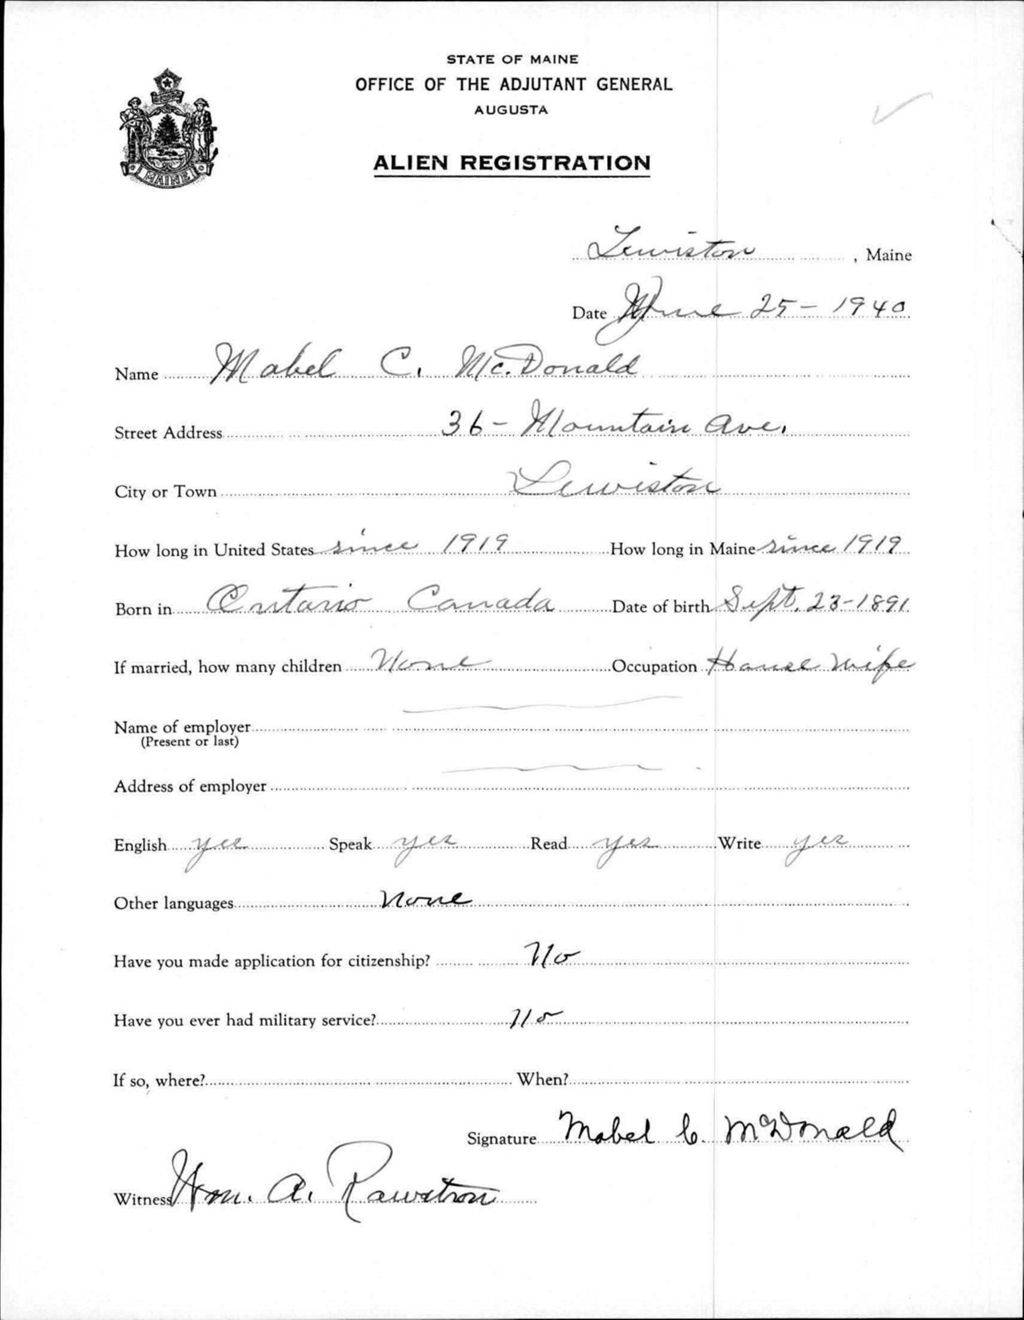 STATE OF MAINE
OFFICE OF THE ADJUTANT GENERAL
AUGUSTA
MAINE
ALIEN REGISTRATION
Lewiston, Maine
Date June 25 - 1940
Name Mabel C. McDonald
Street Address 36 - Mountain Ave.
City or Town Lewiston
How long in United States since 1919 How long in Maine since 1919
Born in Ontario Canada Date of birth Sept. 23 - 1891
If married, how many children None Occupation House Wife
Name of employer
(Present or last)
Address of employer
English yes Speak yes Read yes Write yes
Other languages None
Have you made application for citizenship? No
Have you ever had military service? No
If so, where? When?
Signature Mabel C. McDonald
Witness Wm. A. Rawstron